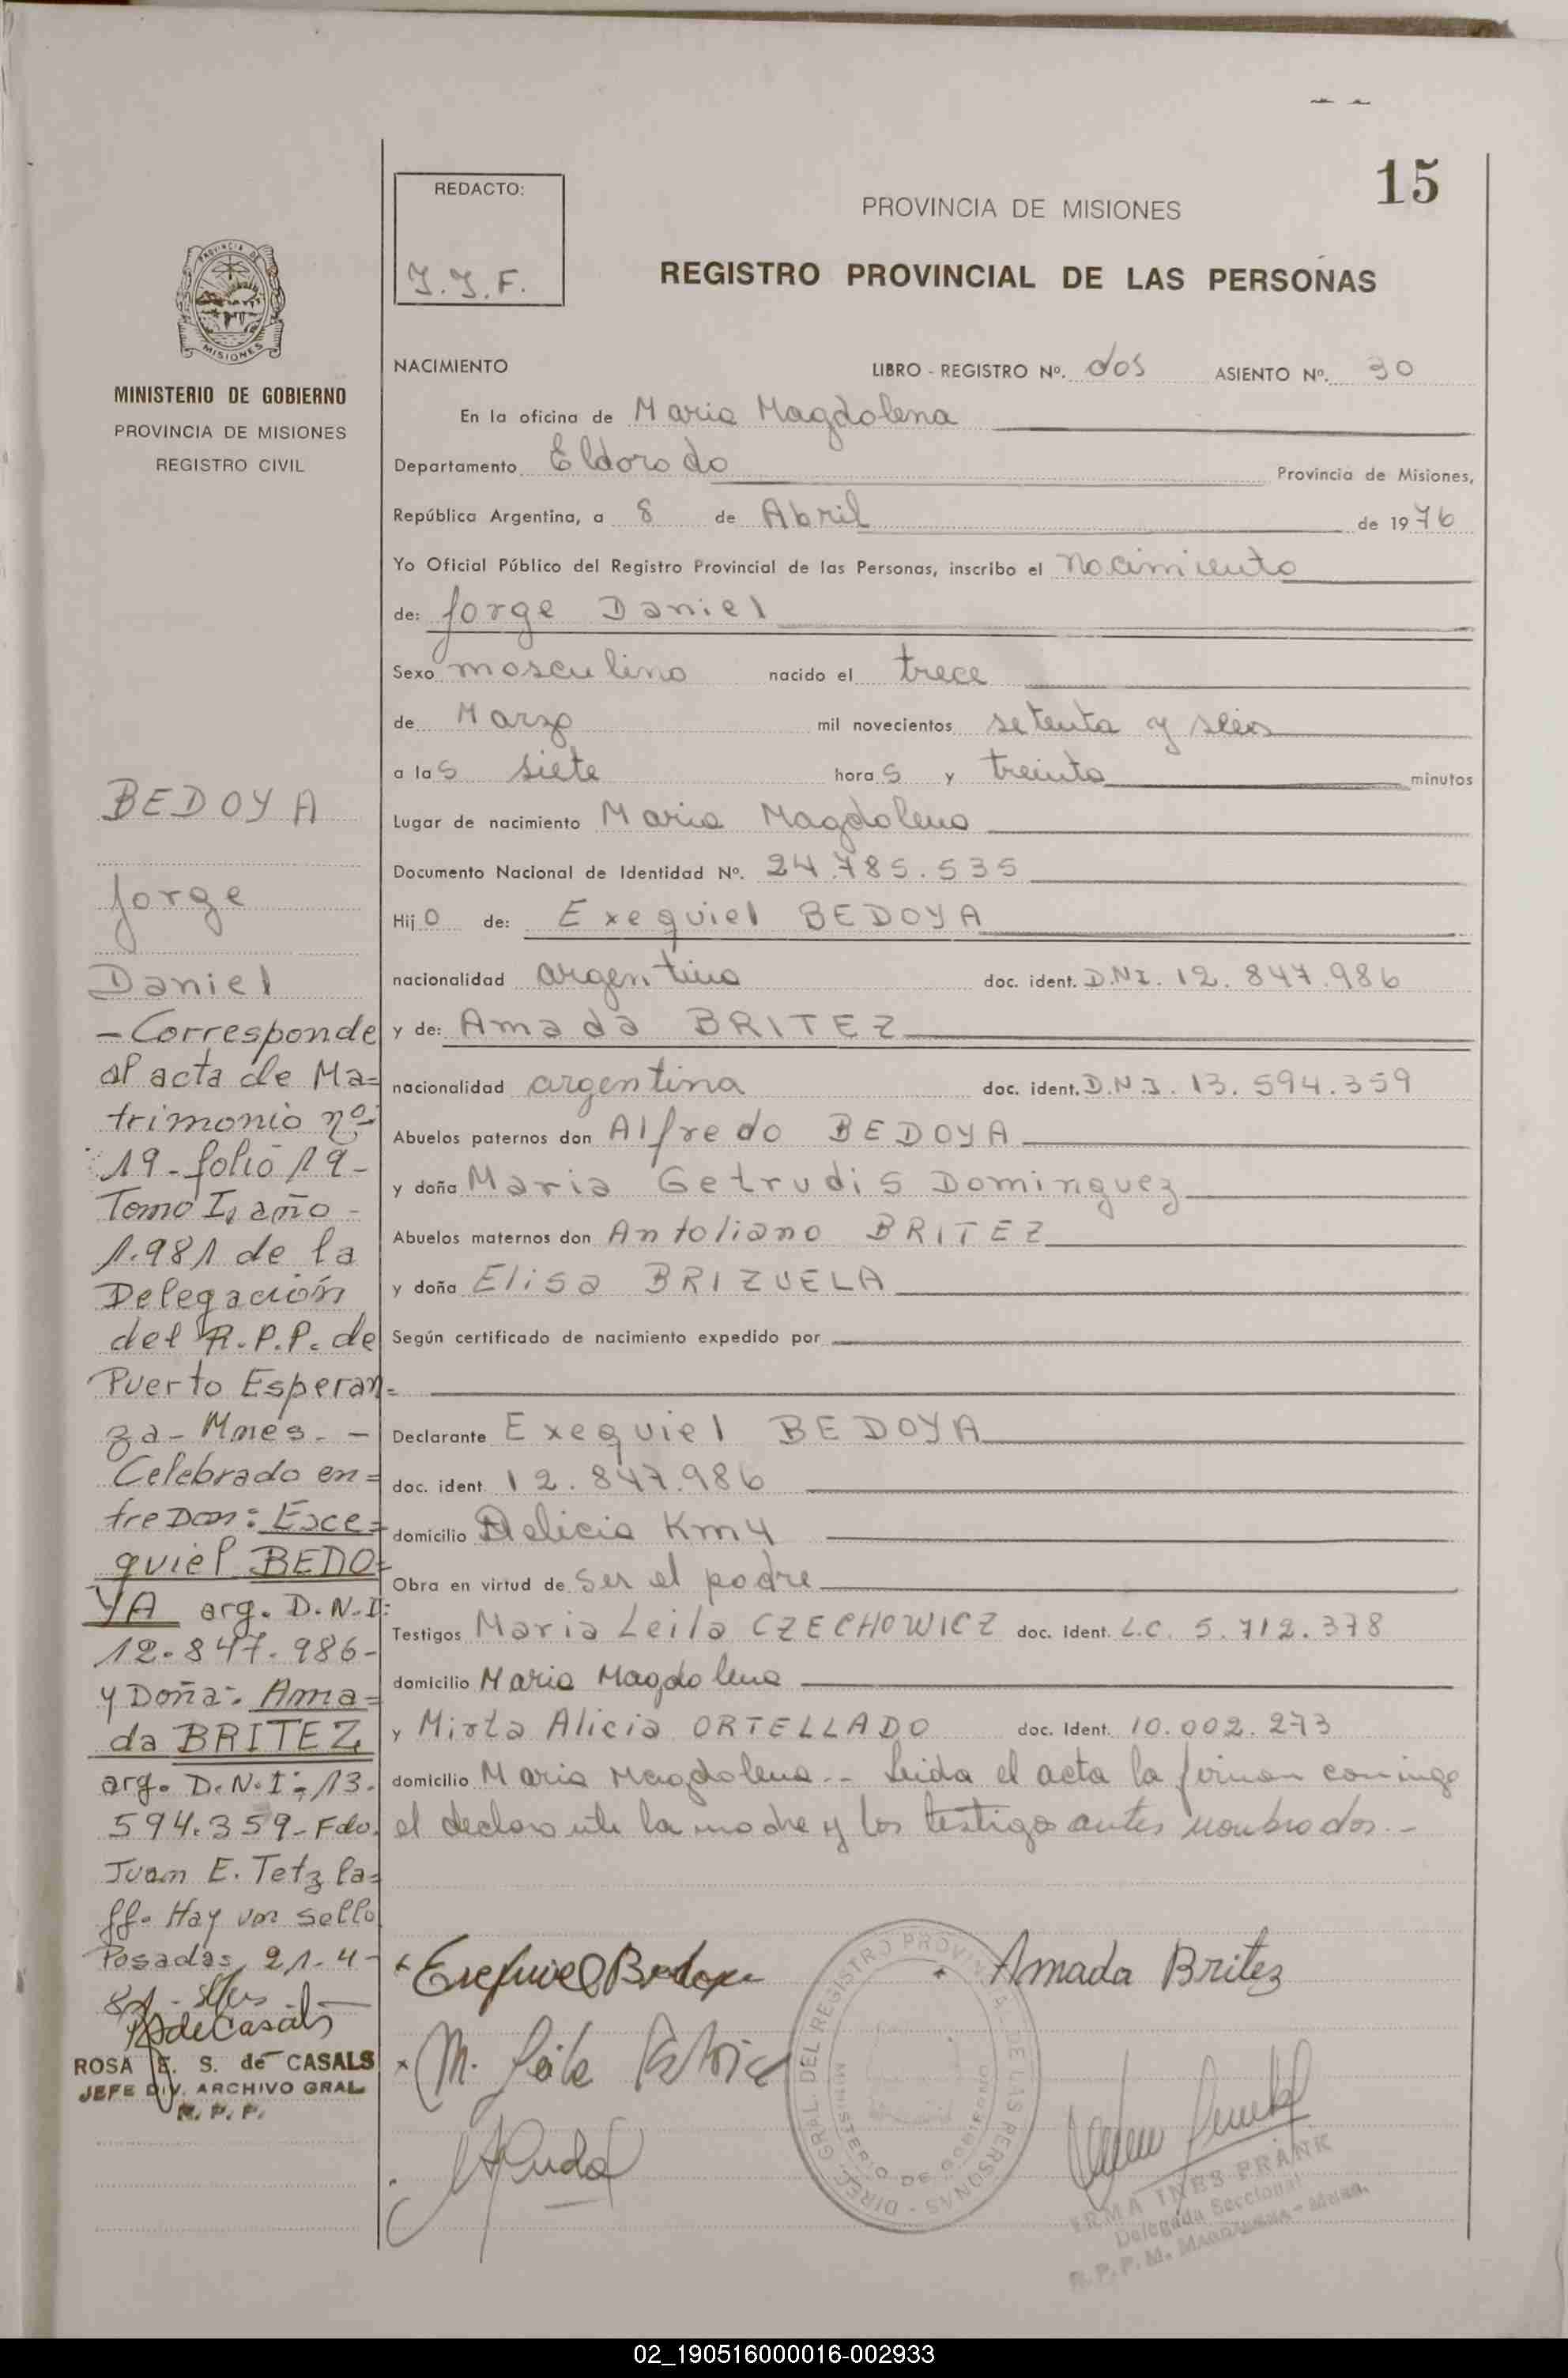 15
REDACTO:
PROVINCIA DE MISIONES
REGISTRO PROVINCIAL DE LAS PERSONAS
PROVINCIA DE
MISIONES
MINISTERIO DE GOBIERNO
PROVINCIA DE MISIONES
REGISTRO CIVIL
NACIMIENTO LIBRO - REGISTRO Nº. dos ASIENTO Nº. 30
En la oficina de Maria Magdalena
Departamento Eldorado Provincia de Misiones,
República Argentina, a 8 de Abril de 1976
Yo Oficial Público del Registro Provincial de las Personas, inscribo el nacimiento
de: Jorge Daniel
Sexo masculino nacido el trece
de Marzo mil novecientos setenta y seis
a las siete horas y treinta minutos
Lugar de nacimiento Maria Magdalena
Documento Nacional de Identidad Nº. 24.785.535
Hijo de: Exequiel BEDOYA
nacionalidad argentino doc. ident. D.N.I. 12.847.986
y de: Amada BRITEZ
nacionalidad argentina doc. ident. D.N.I. 13.594.359
Abuelos paternos don Alfredo BEDOYA
y doña Maria Getrudis Dominguez
Abuelos maternos don Antoliano BRITEZ
y doña Elisa BRIZUELA
Según certificado de nacimiento expedido por
Declarante Exequiel BEDOYA
doc. ident 12.847.986
domicilio Delicia Km 4
Obra en virtud de ser el padre
Testigos Maria Leila CZECHOWICZ doc. Ident. L.C. 5.712.378
domicilio Maria Magdalena
y Mirta Alicia ORTELLADO doc. Ident. 10.002.273
domicilio Maria Magdalena.- Leida el acta la firman conmigo
el declarante la madre y los testigos antes nombrados.-
BEDOYA
Jorge
Daniel
- Corresponde
al acta de Ma=
trimonio nº:
19 - folio 19 -
Tomo I, año -
1.981 de la
Delegación
del R.P.P. de
Puerto Esperan=
za - Mnes. -
Celebrado en=
tre Don: Exce=
quiel BEDO=
YA arg. D.N.I:
12.847.986-
y Doña: Ama=
da BRITEZ
arg. D.N.I: 13.
594.359 - Fdo.
Juan E. Tetzla=
ff. Hay un sello
Posadas, 21-4-
81 -
ROSA E. S. de CASALS
JEFE DIV. ARCHIVO GRAL.
R. P. P.
Amada Britez
DIREC. GRAL. DEL REGISTRO PROVINCIAL DE LAS PERSONAS
MINISTERIO DE GOBIERNO
IRMA INES PRANK
Delegada Seccional
R.P.P. M. MAGDALENA - Mnes.
02_190516000016-002933